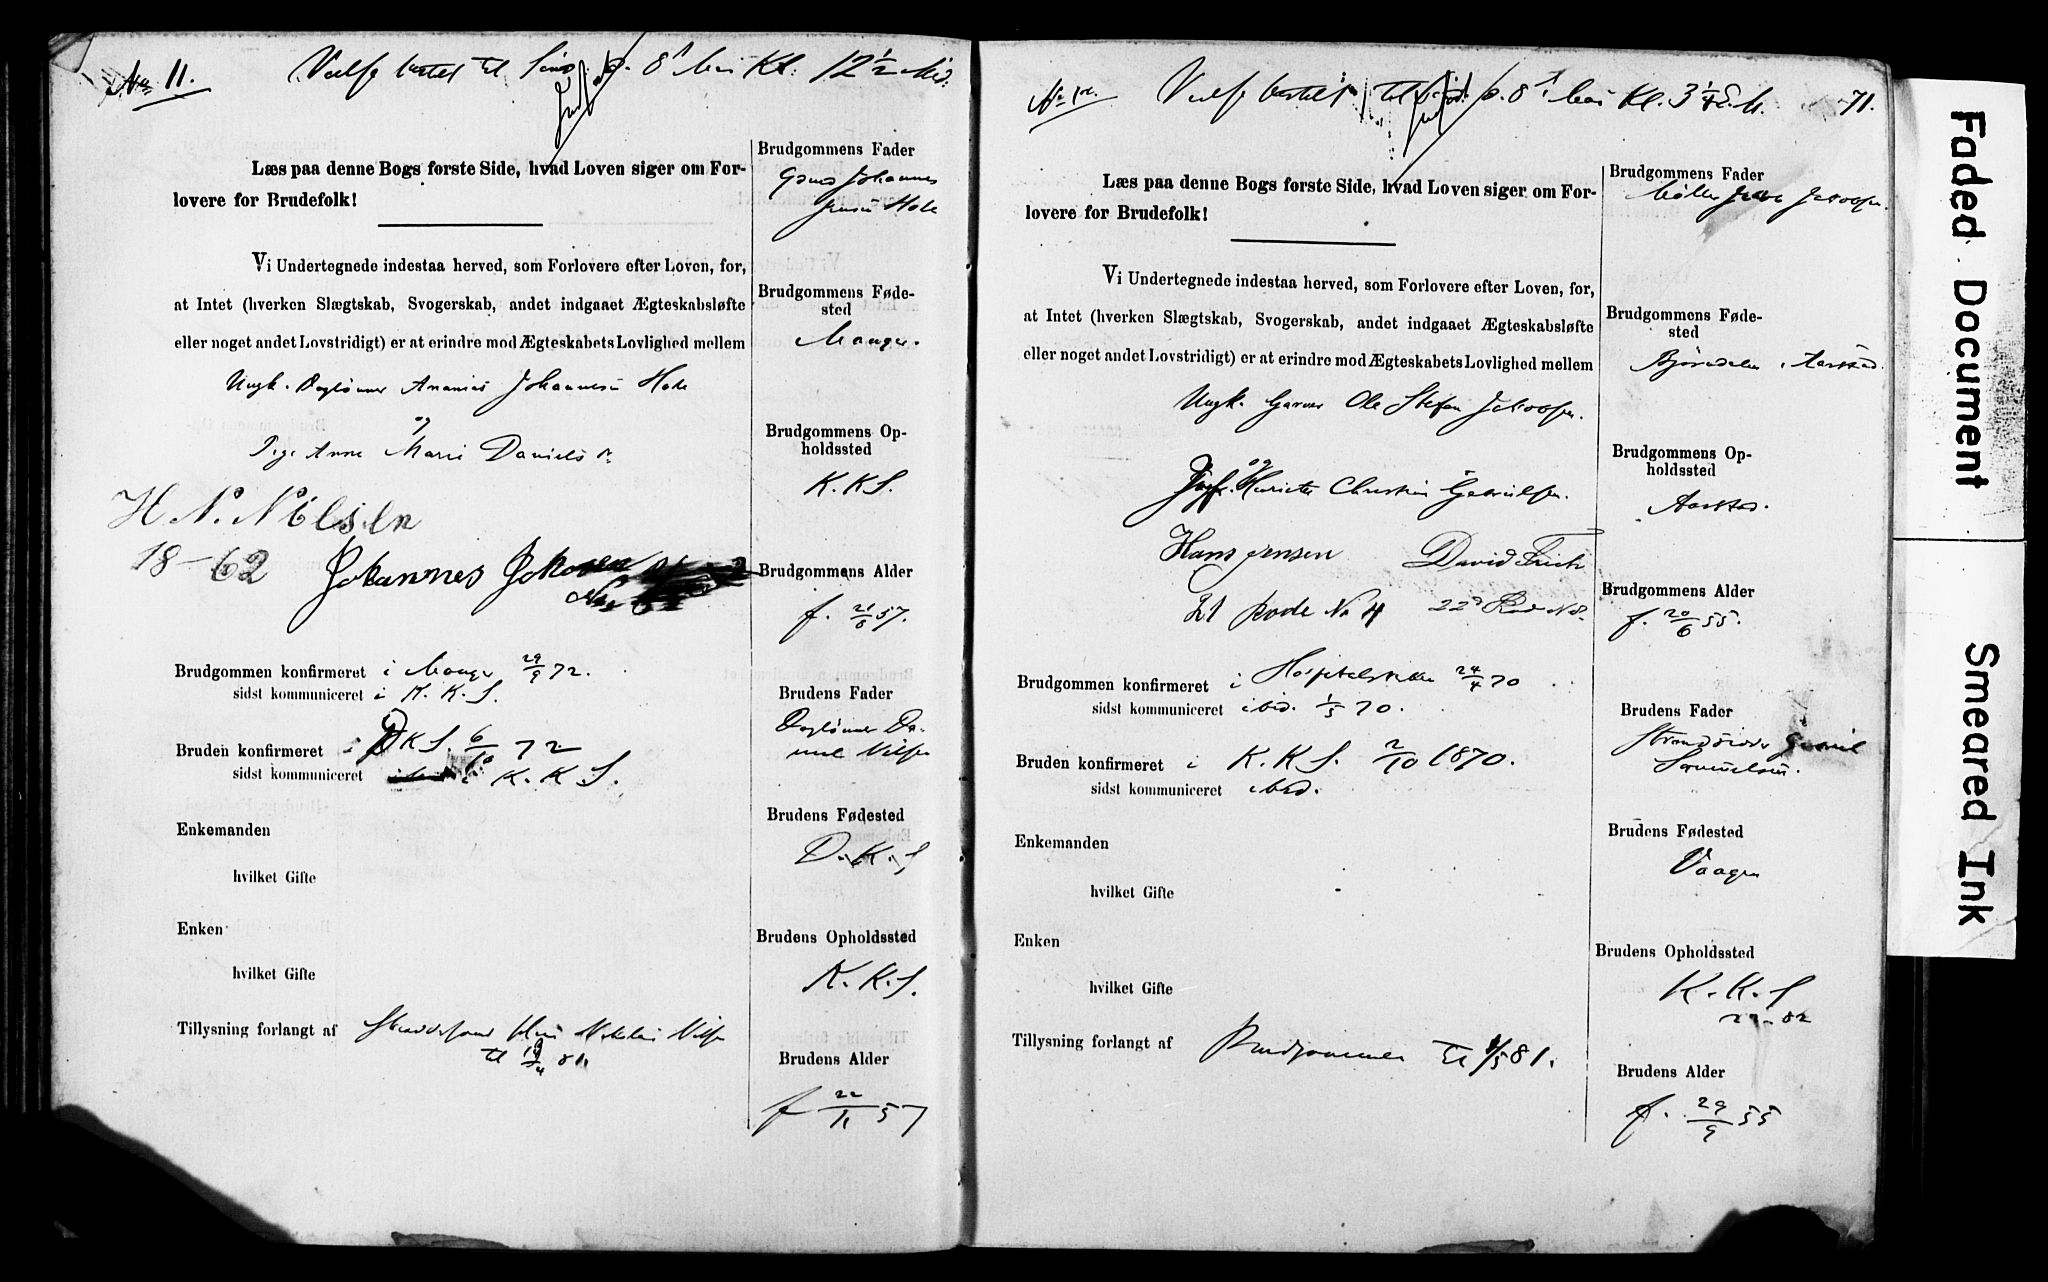 No 11. Vielse bestilt til Sønd. d. 8d Mai Kl: 12 1/2 Mid:
Læs paa denne Bogs første Side, hvad Loven siger om For-
lovere for Brudefolk!
Vi Undertegnede indestaa herved, som Forlovere efter Loven, for,
at Intet (hverken Slægtskab, Svogerskab, andet indgaaet Ægteskabsløfte
eller noget andet Lovstridigt) er at erindre mod Ægteskabets Lovlighed mellem
Ungk. Daglønner Ananias Johannesen Hole
og
Pige Anne Marie Danielsdr.
H. N. Nilsen
18-62 Johannes
Brudgommen konfirmeret i Manger 29/9 72.
sidst kommuniceret i K. K. S.
Bruden konfirmeret i D K S. 6/10 72
sidst kommuniceret i K. K. S.
Enkemanden
hvilket Gifte
Enken
hvilket Gifte
Tillysning forlangt af Hans Nikolai Nilsen
til 81.
Brudgommens Fader
Johannes
Jensen Hole
Brudgommens Føde-
sted
Manger.
Brudgommens Op-
holdssted
K. K. S.
Brudgommens Alder
f. 21/8 57.
Brudens Fader
Daglønner Da-
niel Nilsen
Brudens Fødested
D. K. S.
Brudens Opholdssted
K. K. S.
Brudens Alder
f 22/11 57
No 12. Vielse bestilt til d. 8d Mai Kl. 3 1/4 E. M. 71.
Læs paa denne Bogs første Side, hvad Loven siger om For-
lovere for Brudefolk!
Vi Undertegnede indestaa herved, som Forlovere efter Loven, for,
at Intet (hverken Slægtskab, Svogerskab, andet indgaaet Ægteskabsløfte
eller noget andet Lovstridigt) er at erindre mod Ægteskabets Lovlighed mellem
Ungk. Garver Ole Stefan Jakobsen.
og
Henriette Christine Gabrielsen.
Hans Jensen David Frich
21 Rode No 4 22d Rode No
Brudgommen konfirmeret i Hospitalskirken 24/4 70
sidst kommuniceret ibid. 1/5 70.
Bruden konfirmeret i K. K. S. 2/10 1870.
sidst kommuniceret ibid.
Enkemanden
hvilket Gifte
Enken
hvilket Gifte
Tillysning forlangt af Brudgommen til 1/5 81.
Brudgommens Fader
Møller Jakobsen.
Brudgommens Føde-
sted
Bjørndalen i Aarstad.
Brudgommens Op-
holdssted
Aarstad.
Brudgommens Alder
f. 20/6 55.
Brudens Fader
Strandsidder Gabriel
Samuelsen.
Brudens Fødested
Vaagen
Brudens Opholdssted
K. K. S
22-82
Brudens Alder
f. 29/9 55
Faded Document
Smeared Ink